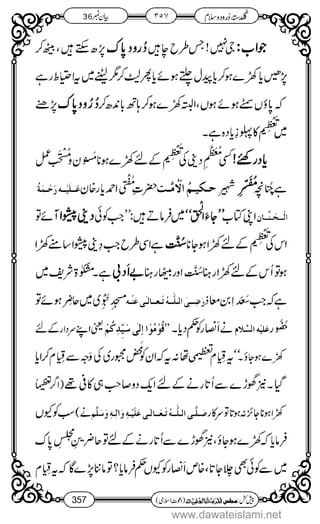 بیان نمبر 36
۳۵۷
گلدستۂ درود و سلام
جواب : جی نہیں! جس طرح چاہیں دُرود پاک پڑھ سکتے ہیں ، بیٹھ کر
پڑھیں یا کھڑے ہوکر یا پیدل چلتے ہوئے یا پھر لیٹ کر مگر لیٹنے میں یہ احتیاط رہے
کہ پاؤں سمٹے ہوئے ہوں، البتہ کھڑے ہوکر ہاتھ باندھ کر دُرُود پاک پڑھنے
میں تعظیم کا پہلو زیادہ ہے۔
یاد رکھئے! کسی مُعَظَّم دینی کی تعظیم کے لئے کھڑے ہونا مسنون و مُسْتَحَب عمل
ہے چنانچہ مُفَسِّرِ شہیر حکیمُ الْاُمَّت حضرتِ مفتی احمد یار خان عَـلَـيـْهِ رَحْمَةُ
الْـحَـنَّـان اپنی کتاب ’’جَاءَ الْحَق‘‘ میں فرماتے ہیں: ’’جب کوئی دینی پیشوا آئے تو
اس کی تعظیم کے لئے کھڑا ہوجانا سُنَّت ہے اسی طرح جب دینی پیشوا سامنے کھڑا
ہو تو اس کے لئے کھڑا رہنا سُنَّت اور بیٹھا رہنا بے ادبی ہے۔ مشکوٰۃ شریف میں
ہے کہ جب سعد ابنِ معاذ رَضِىَ اللّٰهُ تَعَالٰى عَنْهُ مسجدِ نَبَوِی میں حاضر ہوئے تو
حُضُور عَلَيْهِ السَّلَام نے انصار کو حکم دیا۔ ’’قُوْمُوْا اِلٰی سَیِّدِکُمْ یعنی اپنے سردار کے لئے
کھڑے ہوجاؤ۔‘‘ یہ قیام تعظیمی تھا نہ یہ کہ ان کو محض مجبوری کی وجہ سے قیام کرایا
گیا۔ نیز گھوڑے سے اُتارنے کے لئے ایک دو صاحب ہی کافی تھے (اگر تعظیماً
کھڑا ہونا جائز نہ ہوتا تو سرکار صَلَّى اللّٰهُ تَعَالٰى عَلَيْهِ وَاٰلِهٖ وَسَلَّم نے) سب کو کیوں
فرمایا کہ کھڑے ہوجاؤ، نیز گھوڑے سے اُتارنے کے لئے تو حاضرینِ مجلسِ پاک
میں سے کوئی بھی چلا جاتا، خاص انصار کو کیوں حکم فرمایا؟ تو ماننا پڑے گا کہ یہ قیام
پیش کش: مجلس المدینۃ العلمیۃ (دعوت اسلامی)
357
www.dawateislami.net